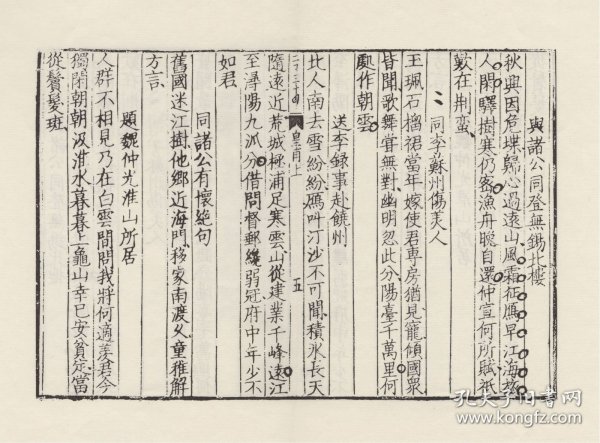 與諸公同登無錫北樓
秋興因危堞歸心過遠山風霜征雁早江海
人閑驛樹寒仍密漁舟晚自還仲宣何所賦祇
歎在荆蠻
同李蘇州傷美人
玉珮石榴裙當年嫁使君專房猶見寵傾國衆
皆聞歌舞常無對幽明忽此分陽臺千萬里何
處作朝雲
送李録事赴饒州
北人南去雪紛紛雁叫汀沙不可聞積水長天
二百三十四 皇甫上 五
隨遠近荒城極浦足寒雲山從建業千峰遠江
至潯陽九派分借問督郵纔弱冠府中年少不
如君
同諸公有懷絶句
舊國迷江樹他鄉近海門移家南渡久童稚解
方言
題魏仲光淮山所居
人群不相見乃在白雲間問我將何適羨君今
獨閉朝朝汲淮水暮暮上龜山幸已安貧定當
從鬢髮斑
孔夫子旧書网
www.kongfz.com